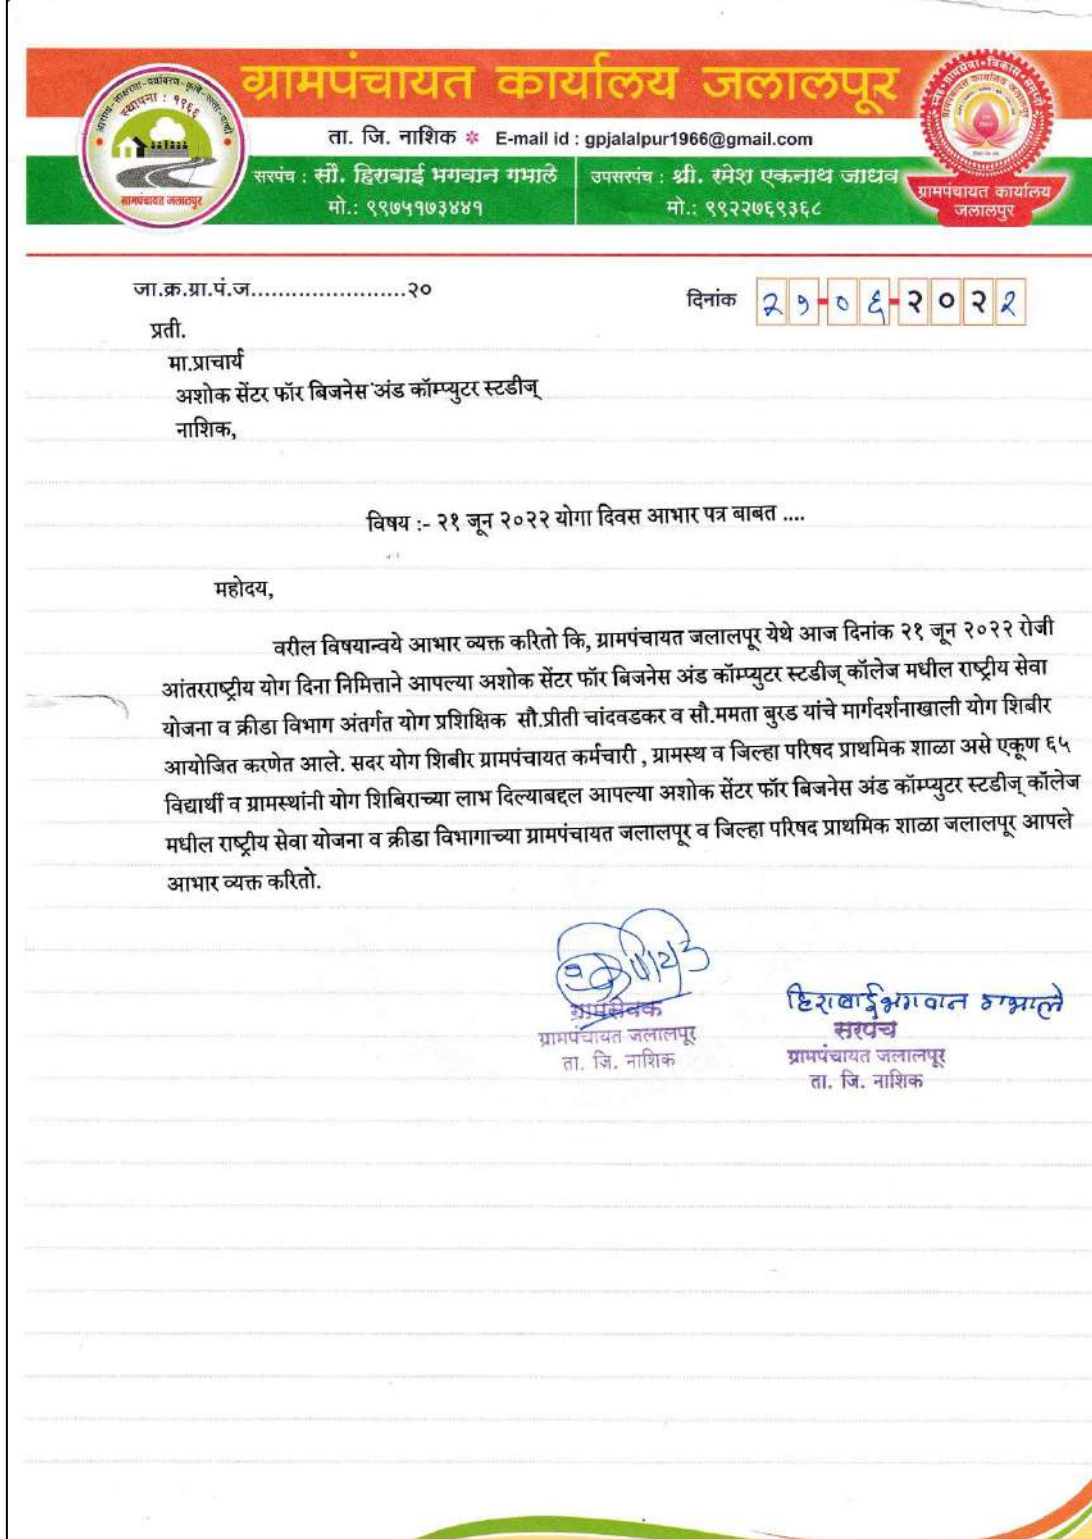 ग्रामपंचायत कार्यालय जलालपूर
स्थापना : १९६६
ग्रामपंचायत जलालपूर
ता. जि. नाशिक E-mail id : gpjalalpur1966@gmail.com
सरपंच : सौ. हिराबाई भगवान गभाले
मो.: ९९७५१७३४४१
उपसरपंच : श्री. रमेश एकनाथ जाधव
मो.: ९९२२७६९३६८
ग्रामपंचायत कार्यालय
जलालपूर
जा.क्र.ग्रा.पं.ज.......................२०
दिनांक २१-०६-२०२२
प्रती.
मा.प्राचार्य
अशोक सेंटर फॉर बिजनेस अंड कॉम्प्युटर स्टडीज्
नाशिक,
विषय :- २१ जून २०२२ योगा दिवस आभार पत्र बाबत ....
महोदय,
वरील विषयान्वये आभार व्यक्त करितो कि, ग्रामपंचायत जलालपूर येथे आज दिनांक २१ जून २०२२ रोजी
आंतरराष्ट्रीय योग दिना निमित्ताने आपल्या अशोक सेंटर फॉर बिजनेस अंड कॉम्प्युटर स्टडीज् कॉलेज मधील राष्ट्रीय सेवा
योजना व क्रीडा विभाग अंतर्गत योग प्रशिक्षिक सौ.प्रीती चांदवडकर व सौ.ममता बुरड यांचे मार्गदर्शनाखाली योग शिबीर
आयोजित करणेत आले. सदर योग शिबीर ग्रामपंचायत कर्मचारी , ग्रामस्थ व जिल्हा परिषद प्राथमिक शाळा असे एकूण ६५
विद्यार्थी व ग्रामस्थांनी योग शिबिराच्या लाभ दिल्याबद्दल आपल्या अशोक सेंटर फॉर बिजनेस अंड कॉम्प्युटर स्टडीज् कॉलेज
मधील राष्ट्रीय सेवा योजना व क्रीडा विभागाच्या ग्रामपंचायत जलालपूर व जिल्हा परिषद प्राथमिक शाळा जलालपूर आपले
आभार व्यक्त करितो.
ग्रामसेवक
ग्रामपंचायत जलालपूर
ता. जि. नाशिक
हिराबाई भगवान गभाले
सरपंच
ग्रामपंचायत जलालपूर
ता. जि. नाशिक